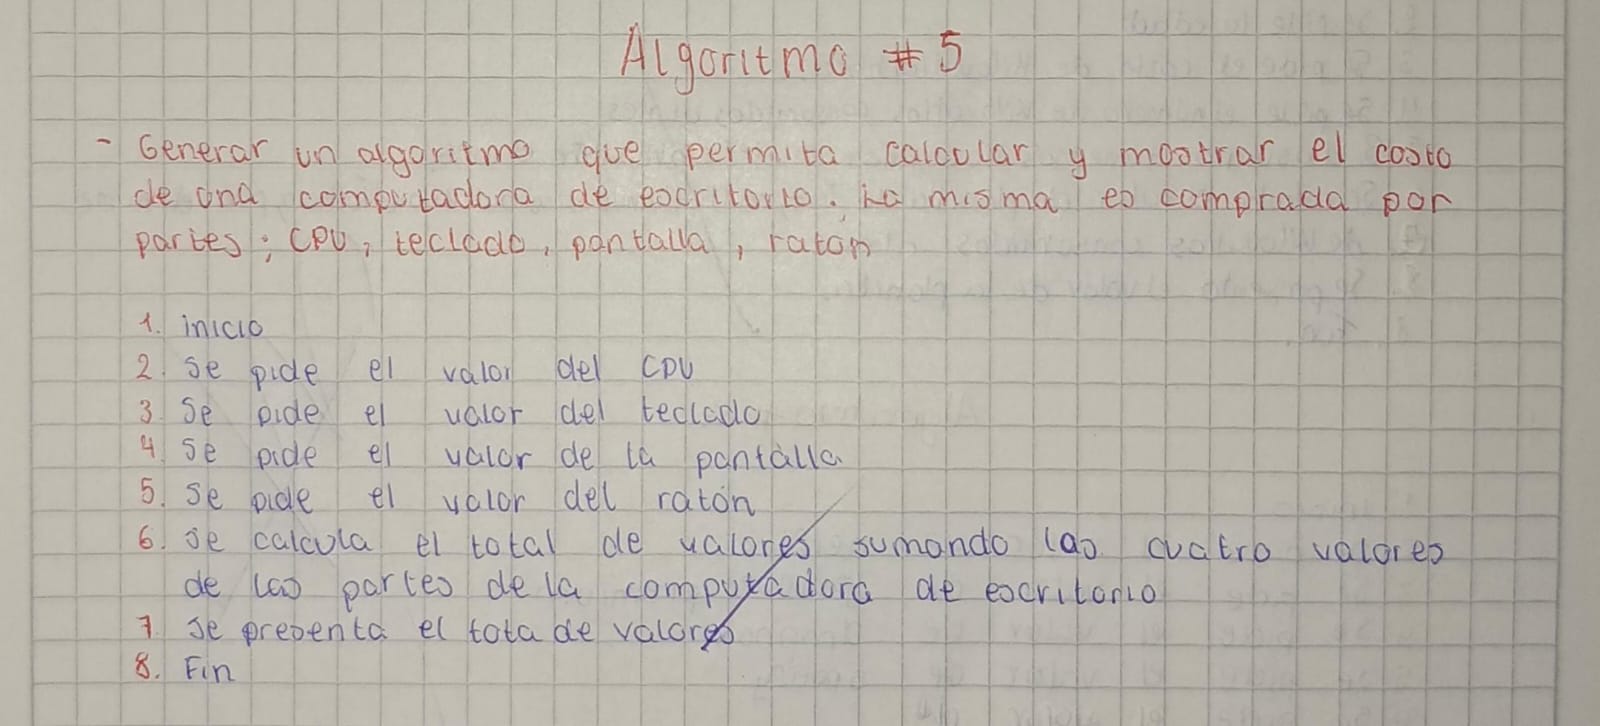 Algoritmo # 5
- Generar un algoritmo que permita calcular y mostrar el costo
de una computadora de escritorio. La misma es comprada por
partes; CPU, teclado, pantalla, ratón
1. inicio
2. Se pide el valor del CPU
3. Se pide el valor del teclado
4. Se pide el valor de la pantalla
5. Se pide el valor del ratón
6. Se calcula el total de valores sumando las cuatro valores
de las partes de la computadora de escritorio
7. Se presenta el tota de valores
8. Fin